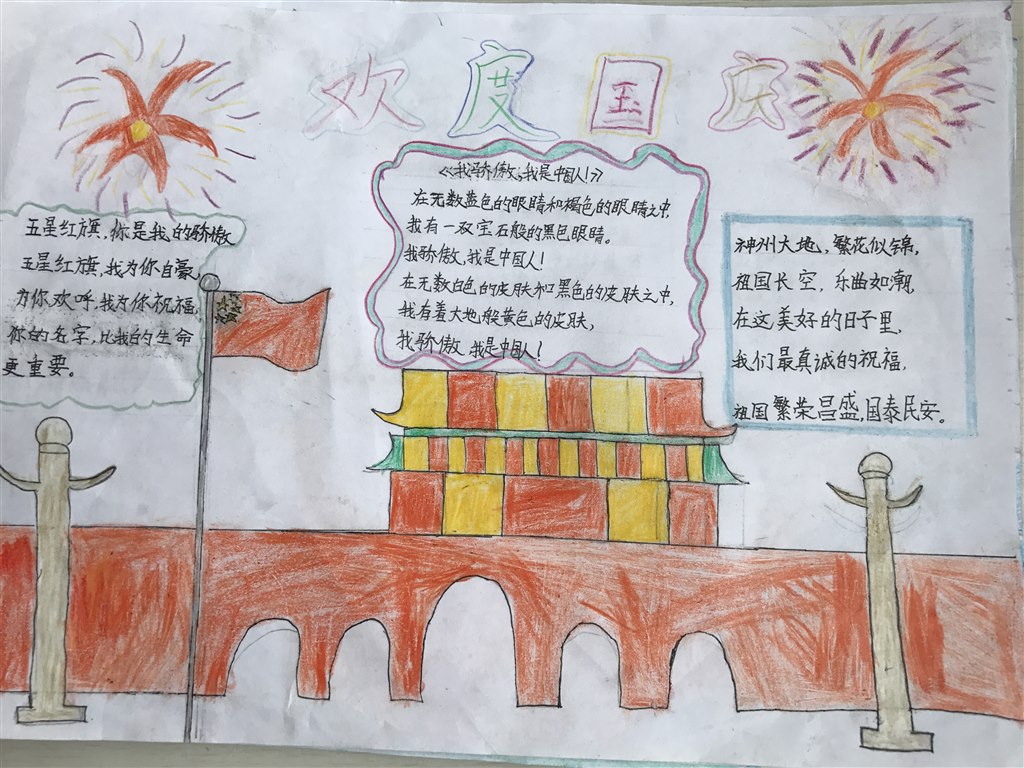 欢度国庆
五星红旗,你是我的骄傲
五星红旗,我为你自豪,
为你欢呼,我为你祝福,
你的名字,比我的生命
更重要。
《我骄傲,我是中国人!》
在无数蓝色的眼睛和褐色的眼睛之中,
我有一双宝石般的黑色眼睛。
我骄傲,我是中国人!
在无数白色的皮肤和黑色的皮肤之中,
我有着大地般黄色的皮肤,
我骄傲,我是中国人!
神州大地,繁花似锦,
祖国长空,乐曲如潮,
在这美好的日子里,
我们最真诚的祝福,
祖国繁荣昌盛,国泰民安。